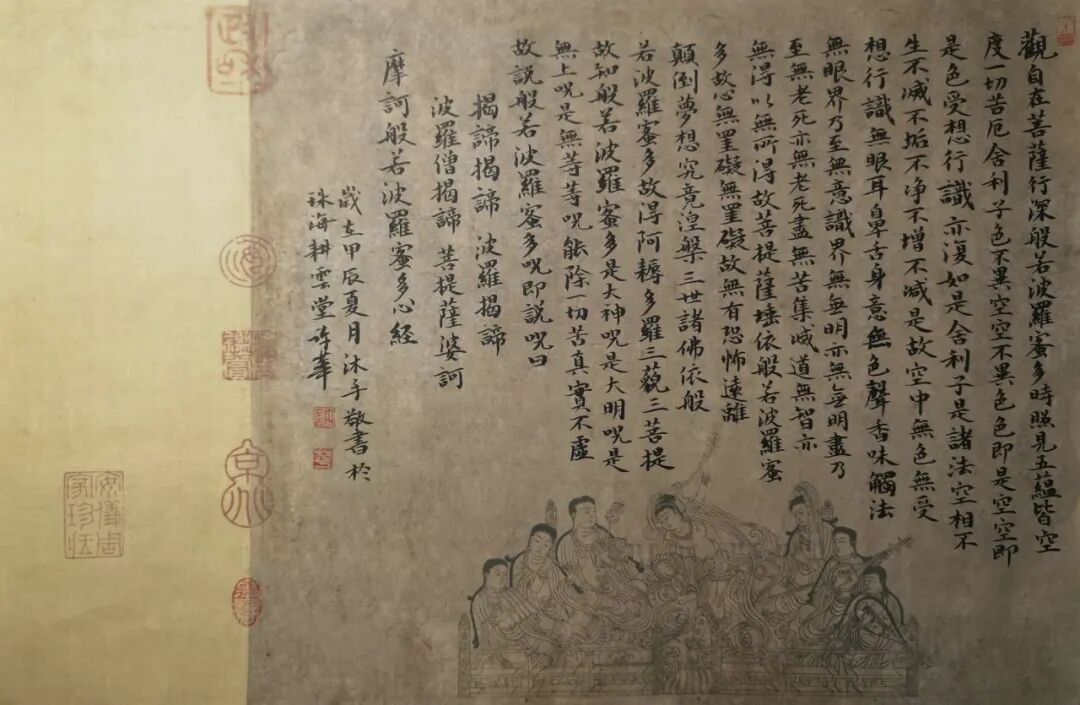 觀自在菩薩行深般若波羅蜜多時照見五蘊皆空
度一切苦厄舍利子色不異空空不異色色即是空空即
是色受想行識亦復如是舍利子是諸法空相不
生不滅不垢不净不增不減是故空中無色無受
想行識無眼耳鼻舌身意無色聲香味觸法
無眼界乃至無意識界無無明亦無無明盡乃
至無老死亦無老死盡無苦集滅道無智亦
無得以無所得故菩提薩埵依般若波羅蜜
多故心無罣礙無罣礙故無有恐怖遠離
顛倒夢想究竟涅槃三世諸佛依般
若波羅蜜多故得阿耨多羅三藐三菩提
故知般若波羅蜜多是大神呪是大明呪是
無上呪是無等等呪能除一切苦真實不虛
故説般若波羅蜜多呪即説呪曰
揭諦揭諦 波羅揭諦
波羅僧揭諦 菩提薩婆訶
摩訶般若波羅蜜多心經
歲在甲辰夏月沐手敬書於
珠海耕雲堂許華
安儀周
家珍藏